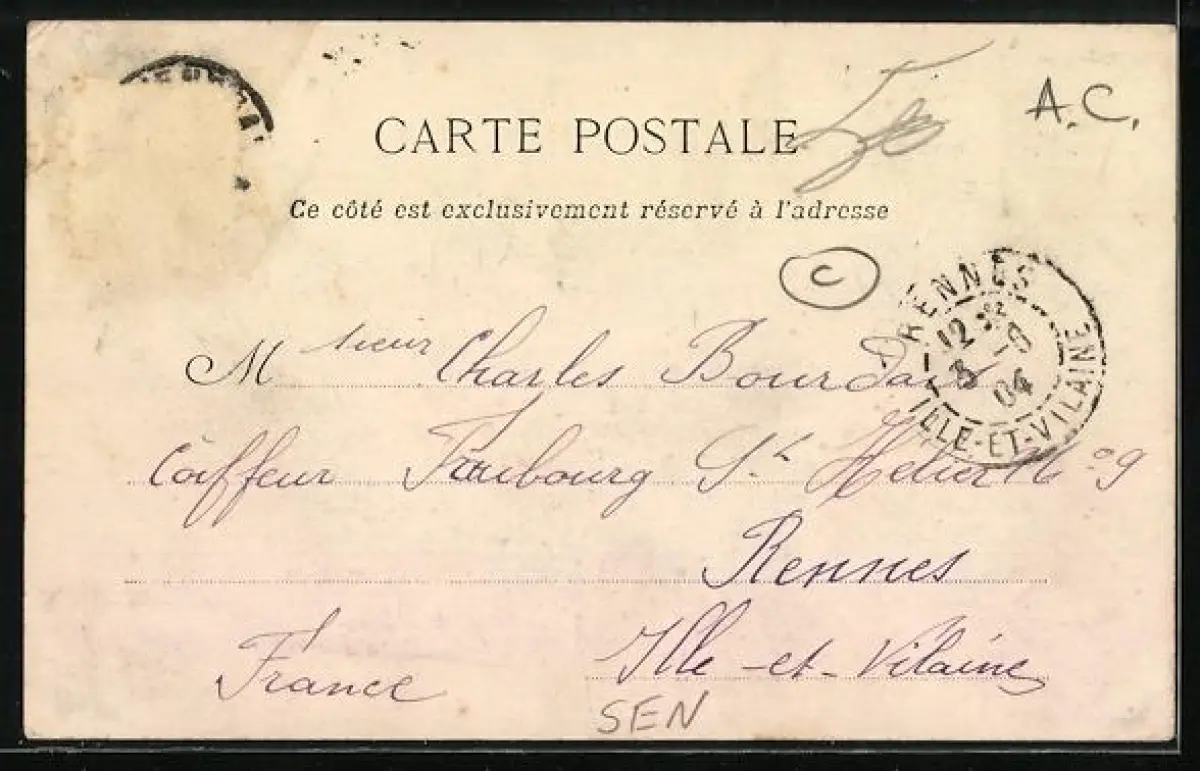 A.C.
CARTE POSTALE
Ce côté est exclusivement réservé à l'adresse
C
RENNES
12
3 -9
04
ILLE-ET-VILAINE
Msieur Charles
Coiffeur Faubourg St Hélier No 9
Rennes
France Ille-et-Vilaine
SEN